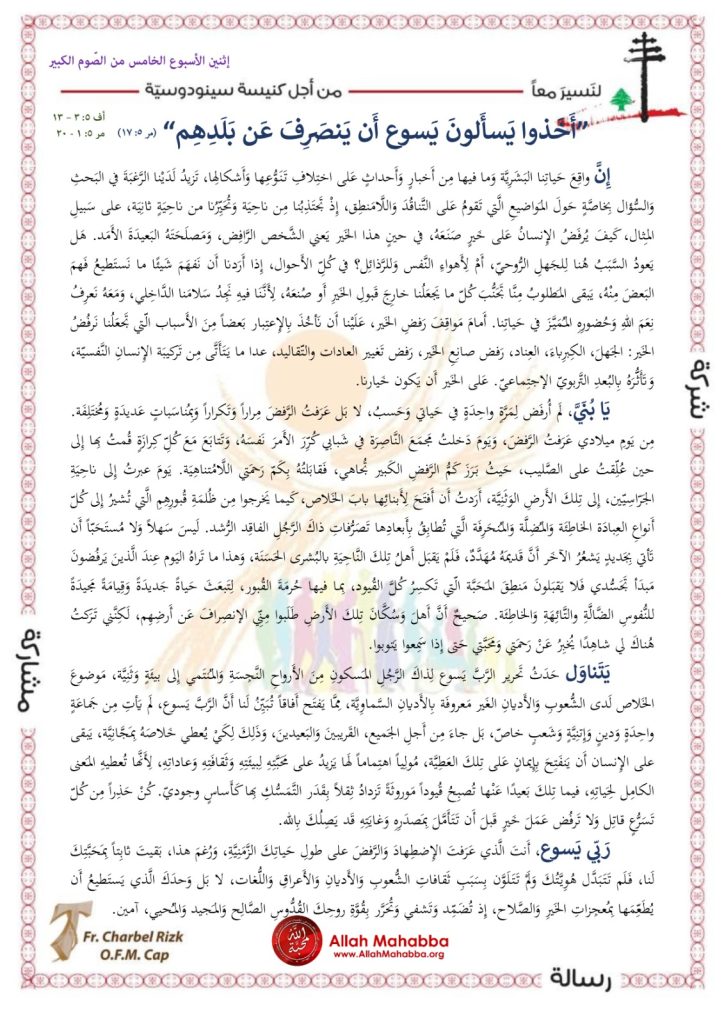 إثنين الأسبوع الخامس من الصّوم الكبير
لنَسيرَ معاً
من أجل كنيسة سينودوسيّة
أف ٥: ٣ – ١٣
مر ٥: ١ – ٢٠
”أَخَذوا يَسأَلونَ يَسوع أَن يَنصَرِفَ عَن بَلَدِهِم“ (مر ٥: ١٧)
إِنَّ واقِعَ حَياتِنا البَشَرِيَّة وَما فيها مِن أَخبارٍ وَأَحداثٍ عَلى اختِلافِ تَنَوُّعِها وَأَشكالِها، تَزيدُ لَدَيْنا الرَّغبَةَ في البَحثِ
وَالسُّؤال بِخاصَّةٍ حَولَ المَواضيعِ الَّتي تَقومُ عَلى التَّناقُدَ وَاللَّامَنطِق، إِذْ تَجْتَذِبُنا مِن ناحِيَة وَتُحَيِّرُنا من ناحِيَةٍ ثانِيَة، على سَبيلِ
المِثال، كَيفَ يُرفَضُ الإنسانُ عَلى خَيرٍ صَنَعَهُ، في حينٍ هذا الخَير يَعني الشَّخص الرَّافِض، وَمَصلَحَتَهُ البَعيدَةَ الأَمَد. هَل
يَعودُ السَّبَبُ هُنا لِلجَهلِ الرُّوحيّ، أَمْ لِأَهواءِ النَّفس وَللرَّذائل؟ في كُلّ الأحوال، إِذا أَرَدنا أَن نَفهَمَ شَيئًا ما نَستَطيعُ فَهمَ
البَعضَ مِنْهُ، يَبقى المَطلوبُ مِنَّا تَجَنُّبَ كُلّ ما يَجعَلُنا خارِجَ قَبولِ الخَيرِ أو صُنعَهُ، لِأَنَّنا فيهِ نَجِدُ سَلامَنا الدَّاخِلي، وَمَعَهُ نَعرِفُ
نِعَمَ اللهِ وَحُضورِهِ المُمَيَّزَ في حَياتِنا. أمامَ مَواقِفَ رَفضِ الخَير، عَلَيْنا أن نَأخُذَ بِالإعتِبار بَعضاً مِنَ الأسباب الّتي تَجعَلُنا نَرفُضُ
الخَير: الجَهلَ، الكِبرِياءَ، العِناد، رَفض صانِعِ الخَير، رَفض تَغيير العادات والتّقاليد، عدا ما يَتَأَتَّى مِن تَركيبَة الإنسانِ النَّفسيّة،
وَتَأَثُّرَهُ بِالبُعدِ التَّربويّ الإجتماعيّ. عَلى الخَيْر أن يَكون خيارنا.
يَا بُنَيَّ، لَم أُرفَض لِمَرَّةٍ واحِدَةٍ في حَياتي وَحَسبُ، لا بَل عَرَفتُ الرَّفضَ مِراراً وَتَكراراً وَبِمُناسَباتٍ عَديدَةٍ وَمُختَلِفَة.
مِن يَومِ ميلادي عَرَفتُ الرَّفضَ، وَيَومَ دَخَلتُ مَجمَعَ النَّاصِرَة في شَبابي كُرِّرَ الأَمرَ نَفسَهُ، وَتَتابَعَ مَعَ كُلّ كِرازَةٍ قُمتُ بِها إلى
حين عُلِّقتُ على الصَّليب، حَيثُ بَرَزَ كَمُّ الرَّفضِ الكَبير تُجاهي، فَقابَلتُهُ بِكَمّ رَحمَتي اللَّامُتناهِيَة. يَومَ عبرتُ إلى ناحِيَةِ
الجَرَاسِيّين، إلى تِلكَ الأَرضِ الوَثَنِيَّة، أَرَدتُ أن أَفتَحَ لِأَبنائِها بابَ الخَلاص، كَيما يَخرجوا مِن ظُلمَةِ قُبورِهِم الَّتي تُشيرُ إلى كُلّ
أنواعِ العِبادَة الخاطِئَة وَالمُضِلَّة وَالمُنحَرِفَة الَّتي تُطابِقُ بِأبعادِها تَصَرُّفاتِ ذاكَ الرَّجُلِ الفاقِدِ الرُّشد. لَيسَ سَهلاً وَلا مُستَحَبّاً أن
تَأتي بِجَديدٍ يَشعُرُ الآخَر أنَّ قَديمَهُ مُهَدَّد، فَلَمْ يَقبَل أَهلُ تِلكَ النَّاحِيَةِ بِالبُشرى الحَسَنَة، وَهذا ما تَراهُ اليَوم عِندَ الَّذينَ يَرفُضونَ
مَبدَأ تَجَسُّدي فَلا يَقبَلونَ مَنطِقَ المَحَبَّة الّتي تَكسِرُ كُلَّ القُيود، بِما فيها حُرمَة القُبور، لِتَبعَثَ حَياةً جَديدَةً وَقِيامَةً مَجيدَةً
لِلنُّفوسِ الضَّالَّةِ وَالتَّائِهَةِ وَالخاطِئَة. صَحيحٌ أنَّ أَهلَ وَسُكَّانَ تِلكَ الأَرضِ طَلَبوا مِنّي الإنصِرافَ عَن أرضِهِم، لَكِنَّني تَرَكتُ
هُناكَ لي شاهِدًا يُخبِرُ عَنْ رَحمَتي وَمَحَبَّتي حَتّى إذا سَمِعوا يَتوبوا.
يَتَناوَل حَدَثُ تَحرير الرَّبّ يَسوع لِذاكَ الرَّجُلِ المَسكونِ مِنَ الأَرواحِ النَّجِسَةِ وَالمُنتَمي إلى بيئَةٍ وَثَنِيَّة، مَوضوعَ
الخَلاصِ لَدى الشُّعوبِ وَالأَديانِ الغَير مَعروفَة بِالأَديانِ السَّماوِيَّة، مِمَّا يَفتَح آفاقاً تُبَيِّنُ لَنا أنَّ الرَّبَّ يَسوع، لَم يَأتِ مِن جَماعَةٍ
واحِدَةٍ وَدينٍ وَإتنِيَّةٍ وَشَعبٍ خاصّ، بَل جاءَ مِن أَجلِ الجَميع، القَريبينَ وَالبَعيدين، وَذلِكَ لِكَيْ يُعطي خَلاصَهُ بِمَجَّانِيَّة، يَبقى
على الإنسان أن يَنْفَتِحَ بِإيمانٍ عَلى تِلكَ العَطِيَّة، مُولِياً اهتِماماً لَها يَزيدُ على مَحَبَّتِهِ لِبيئَتِهِ وَثَقافَتِهِ وَعاداتِهِ، لِأَنَّها تُعطيهِ المَعنى
الكامِل لِحَياتِهِ، فيما تِلكَ بَعيدًا عَنْها تُصبِحُ قُيوداً مَوروثَةً تَزدادُ ثِقلاً بِقَدَر التَّمَسُّكِ بِها كَأَساسٍ وجوديّ. كُنْ حَذِراً مِن كُلّ
تَسَرُّعٍ قاتِلٍ وَلا تَرفُض عَمَلَ خَيرٍ قَبلَ أن تَتَأَمَّلَ بِمَصدَرِهِ وَغايَتِهِ قَد يَصِلُكَ بِالله.
رَبّي يَسوع، أنتَ الَّذي عَرَفتَ الإضطِهادَ وَالرَّفضَ على طولِ حَياتِكَ الزَّمَنِيَّة، وَرُغمَ هَذا، بَقيتَ ثابِتاً بِمَحَبَّتِكَ
لَنا، فَلَم تَتَبَدَّل هُوِيَّتُكَ وَلَمْ تَتَلَوَّن بِسَبَبِ ثَقافاتِ الشُّعوبِ وَالأَديانِ وَالأَعراقِ وَاللُّغات، لا بَل وَحدَكَ الَّذي يَستَطيعُ أن
يُطَعِّمَها بِمُعجِزاتِ الخَيرِ وَالصَّلاح، إذ تُضَمِّد وَتَشفي وَتُحَرِّر بِقُوَّةِ روحِكَ القُدُّوسِ الصَّالِح وَالمَجيد وَالمُحيي، آمين.
شركة
مشاركة
رسالة
Fr. Charbel Rizk
O.F.M. Cap
الله محبة
Allah Mahabba
www.AllahMahabba.org